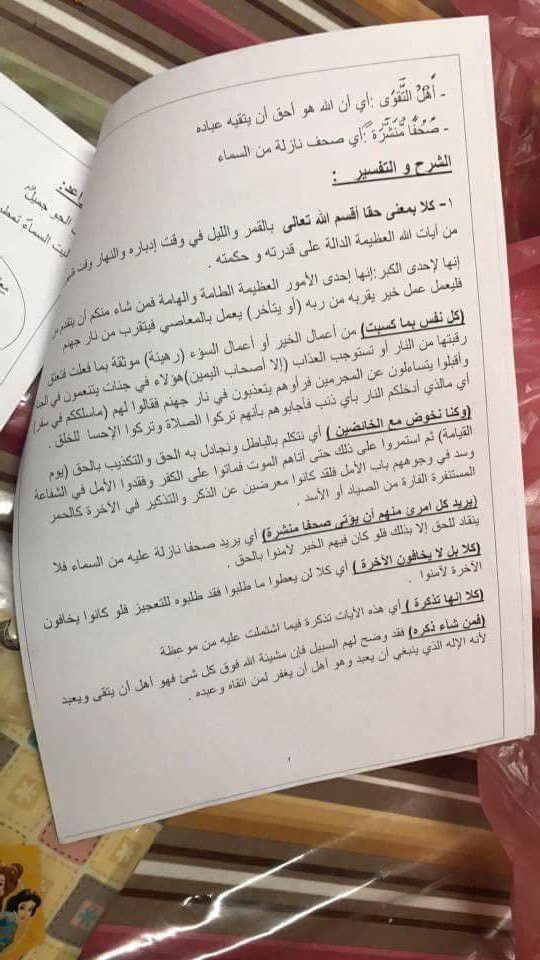 - أَهْلُ التَّقْوَى :أي أن الله هو أحق أن يتقيه عباده
- صُحُفًا مُّنَشَّرَةً :أي صحف نازلة من السماء
الشرح و التفسير :
١- كلا بمعنى حقا أقسم الله تعالى بالقمر والليل في وقت إدباره والنهار وقت
من آيات الله العظيمة الدالة على قدرته و حكمته .
إنها لإحدى الكبر:إنها إحدى الأمور العظيمة الطامة والهامة فمن شاء منكم أن يتقدم
فليعمل عمل خير يقربه من ربه (أو يتأخر) يعمل بالمعاصي فيتقرب من نار جهنم
(كل نفس بما كسبت) من أعمال الخير أو أعمال السوء (رهينة) موثقة بما فعلت
رقبتها من النار أو تستوجب العذاب (إلا أصحاب اليمين)هؤلاء في جنات يتنعمون في
وأقبلوا يتساءلون عن المجرمين فرأوهم يتعذبون في نار جهنم فقالوا لهم (ماسلككم في سقر)
أي مالذي أدخلكم النار بأي ذنب فأجابوهم بأنهم تركوا الصلاة وتركوا الإحسا للخلق .
(وكنا نخوض مع الخائضين ) أي نتكلم بالباطل ونجادل به الحق والتكذيب بالحق (يوم
القيامة) ثم استمروا على ذلك حتى أتاهم الموت فماتوا على الكفر وفقدوا الأمل في الشفاعة
وسد في وجوههم باب الأمل فلقد كانوا معرضين عن الذكر والتذكير في الآخرة كالحمر
المستنفرة الفارة من الصياد أو الأسد .
(يريد كل امرئ منهم أن يؤتى صحفا منشرة) أي يريد صحفا نازلة عليه من السماء فلا
ينقاد للحق إلا بذلك فلو كان فيهم الخير لآمنوا بالحق .
(كلا بل لا يخافون الآخرة ) أي كلا لن يعطوا ما طلبوا فقد طلبوه للتعجيز فلو كانوا يخافون
الآخرة لآمنوا .
(كلا إنها تذكرة ) أي هذه الآيات تذكرة فيما اشتملت عليه من موعظة
(فمن شاء ذكره) فقد وضح لهم السبيل فإن مشيئة الله فوق كل شئ فهو أهل أن يتقى ويعبد
لأنه الإله الذي ينبغي أن يعبد وهو أهل أن يغفر لمن اتقاه وعبده .
٢
الجو جميل
ليت السماء تمطر